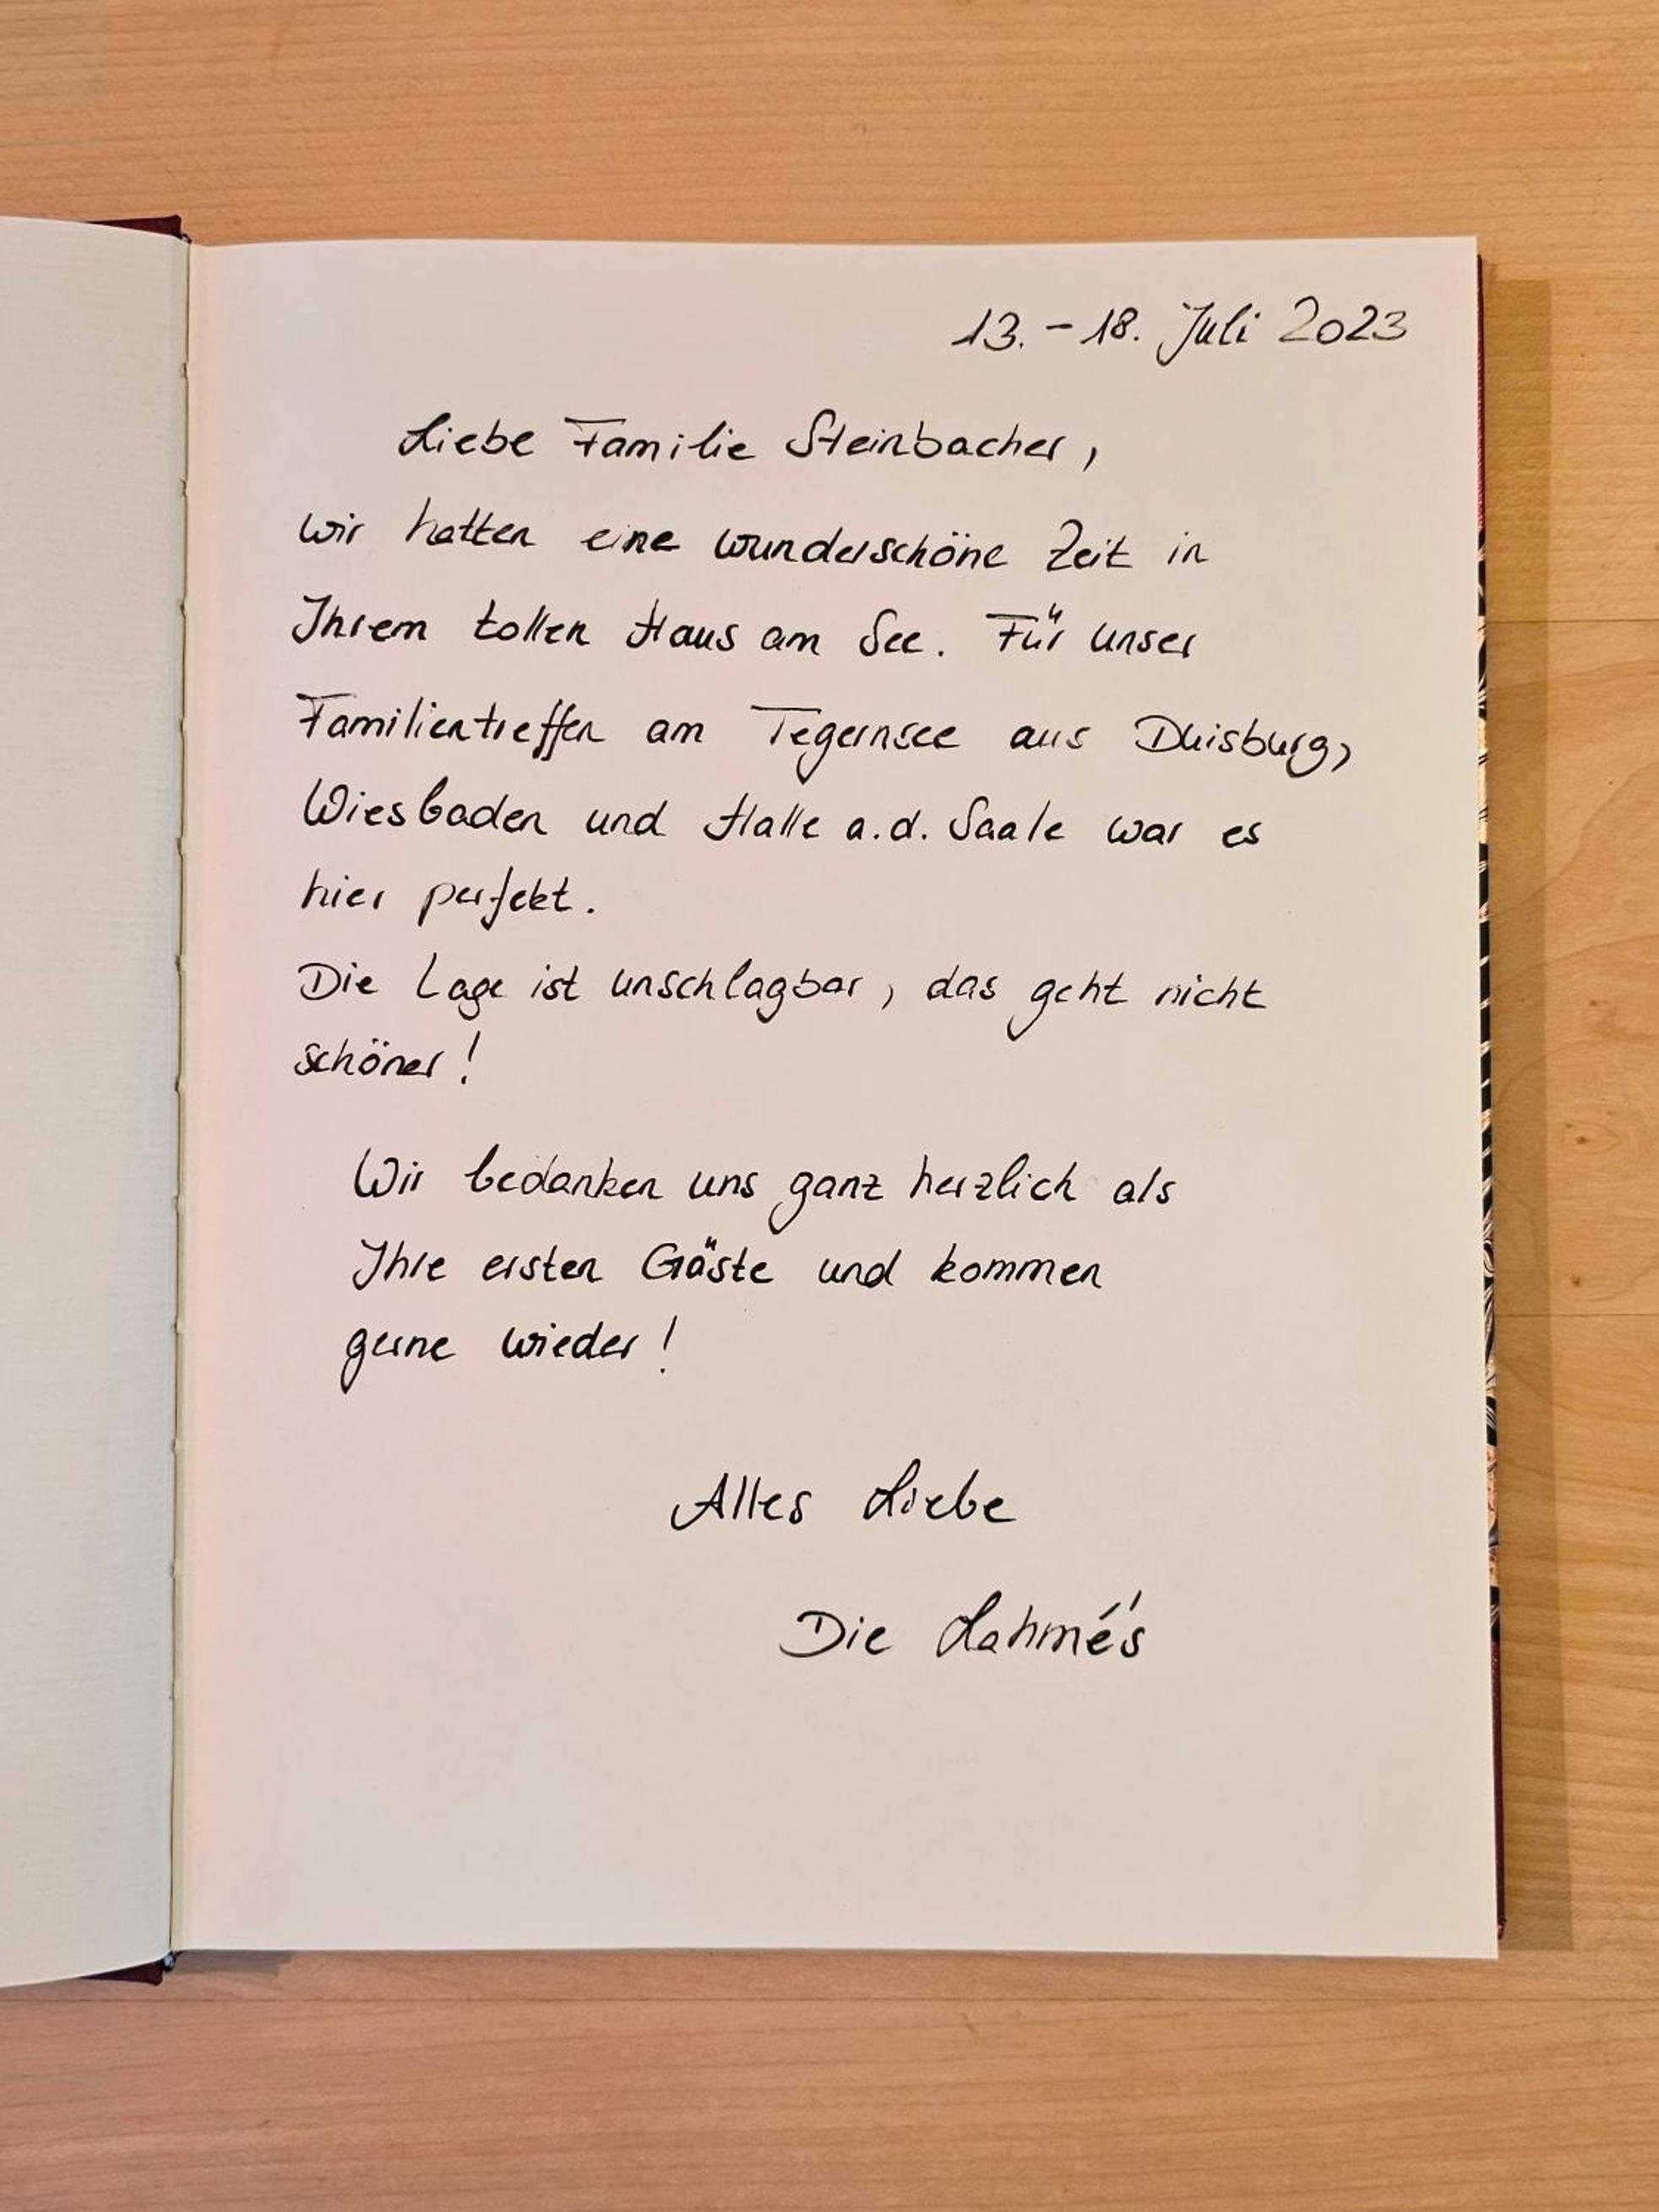 13. - 18. Juli 2023
Liebe Familie Steinbacher,
wir hatten eine wunderschöne Zeit in
Ihrem tollen Haus am See. Für unser
Familientreffen am Tegernsee aus Duisburg,
Wiesbaden und Halle a.d. Saale war es
hier perfekt.
Die Lage ist unschlagbar, das geht nicht
schöner!
Wir bedanken uns ganz herzlich als
Ihre ersten Gäste und kommen
gerne wieder!
Alles Liebe
Die Lahmé's